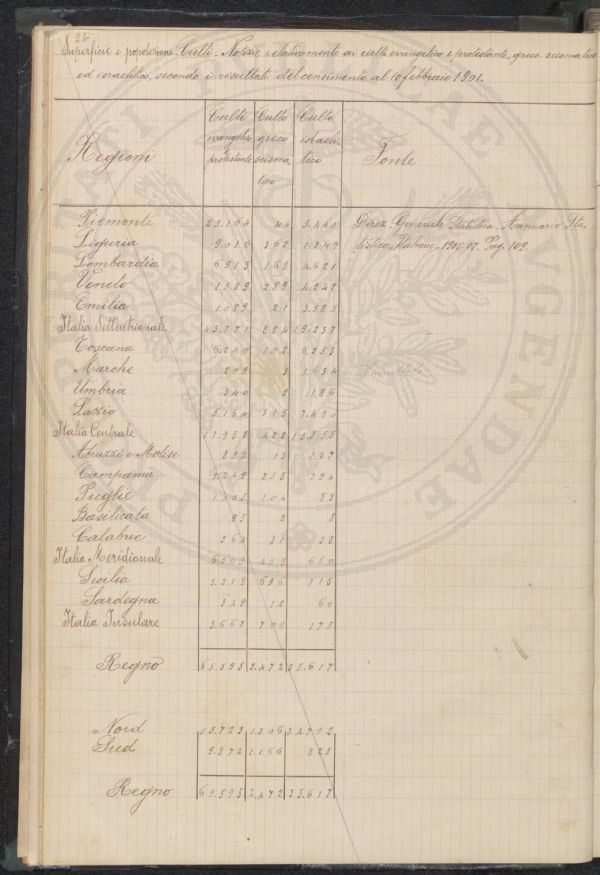 26
Superficie e popolazione. Culti - Notizie relativamente ai culti evangelico e protestante, greco scismatico
ed israelitico, secondo i risultati del censimento al 10 febbraio 1901.
Regioni Culti evangelico protestante Culto greco scismatico Culto israelitico Fonte
Piemonte 25.164 44 5.440 Direz. Generale Statistica. Annuario Sta-
Liguria 9.016 362 1.349 tistico Italiano. 1905-07. Pag. 109.
Lombardia 6.913 168 4.621
Veneto 1.589 289 4.242
Emilia 1.089 21 3.585
Italia Settentrionale 43.771 884 19.237
Toscana 6.240 102 6.255
Marche 208 3 1.634
Umbria 340 2 186
Lazio 5.164 315 7.480
Italia Centrale 11.952 422 15.555
Abruzzi e Molise 13 127
Campania 3.249 258 394
Puglie 104 83
Basilicata 95 2 8
Calabrie 81 38
Italia Meridionale 6.205 458 650
Sicilia 3.318 696 115
Sardegna 349 12 60
Italia Insulare 3.667 708 175
Regno 65.595 2.472 35.617
Nord 55.723 1.306 34.792
Sud 9.872 1.166 825
Regno 65.595 2.472 35.617